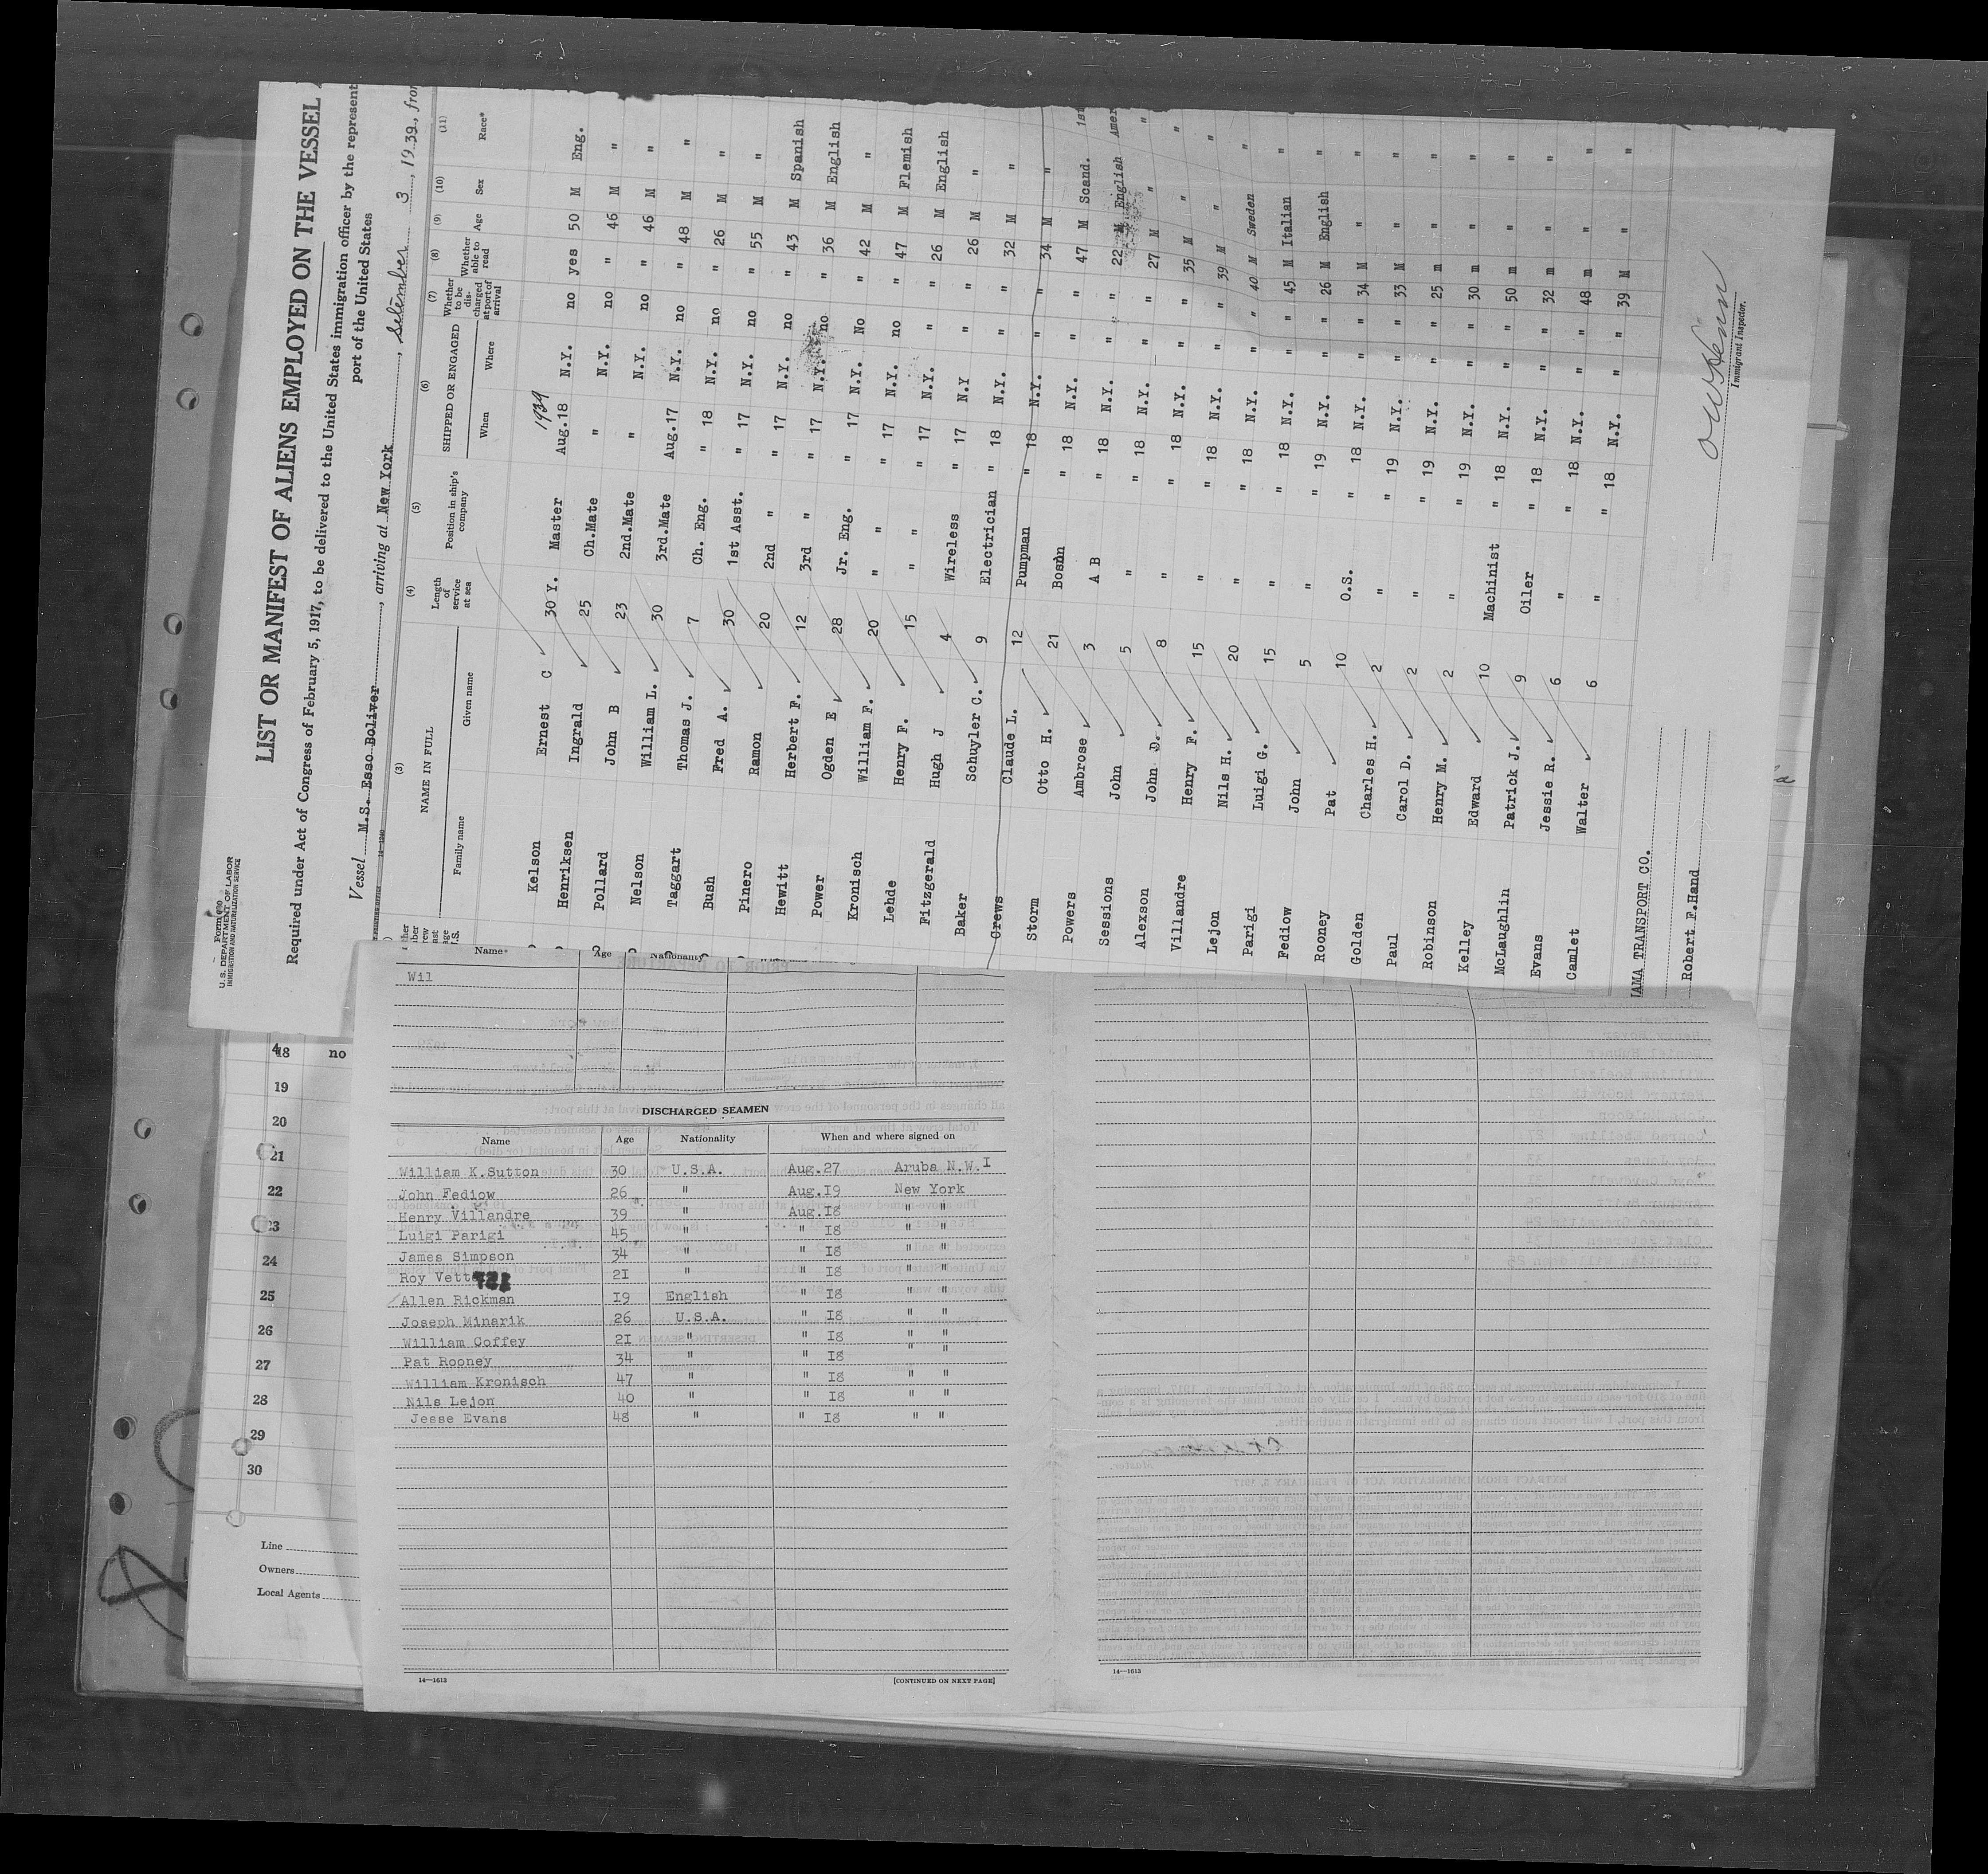 Form 680
U. S. DEPARTMENT OF LABOR
IMMIGRATION AND NATURALIZATION SERVICE
LIST OR MANIFEST OF ALIENS EMPLOYED ON THE VESSEL
Required under Act of Congress of February 5, 1917, to be delivered to the United States immigration officer by the represent
port of the United States
Vessel M.S. Esso Boliver, arriving at New York, Setember 3, 1939, from
(3) (4) (5) (6) (7) (8) (9) (10) (11)
NAME IN FULL Length of service at sea Position in ship's company SHIPPED OR ENGAGED Whether to be discharged at port of arrival Whether able to read Age Sex Race*
Family name Given name When Where
1939
Kelson Ernest C 30 Y. Master Aug.18 N.Y. no yes 50 M Eng.
Henriksen Ingrald 25 Ch.Mate " N.Y. no " 46 M "
Pollard John B 23 2nd.Mate " N.Y. no " 46 M "
Nelson William L. 30 3rd.Mate Aug.17 N.Y. no " 48 M "
Taggart Thomas J. 7 Ch. Eng. " 18 N.Y. no " 26 M "
Bush Fred A. 30 1st Asst. " 17 N.Y. no " 55 M "
Pinero Ramon 20 2nd " " 17 N.Y. no " 43 M Spanish
Hewitt Herbert F. 12 3rd " " 17 N.Y. no " 36 M English
Power Ogden E 28 Jr. Eng. " 17 N.Y. No " 42 M "
Kronisch William F. 20 " " 17 N.Y. no " 47 M Flemish
Lehde Henry F. 15 " " 17 N.Y. " " 26 M English
Fitzgerald Hugh J 4 Wireless " 17 N.Y " " 26 M "
Baker Schuyler C. 9 Electrician " 18 N.Y. " " 32 M "
Crews Claude L. 12 Pumpman " 18 N.Y. " " 34 M "
Storm Otto H. 21 Bosnn " 18 N.Y. " " 47 M Scand. 1st
Powers Ambrose 3 A B " 18 N.Y. " " 22 M English Amer
Sessions John 5 " " 18 N.Y. " " 27 M " "
Alexson John D. 8 " " 18 N.Y. " " 35 M " "
Villandre Henry F. 15 " " 18 N.Y. " " 39 M " "
Lejon Nils H. 20 " " 18 N.Y. " " 40 M Sweden "
Parigi Luigi G. 15 " " 18 N.Y. " " 45 M Italian "
Fediow John 5 " " 19 N.Y. " " 26 M English "
Rooney Pat 10 O.S. " 18 N.Y. " " 34 M " "
Golden Charles H. 2 " " 19 N.Y. " " 33 M " "
Paul Carol D. 2 " " 19 N.Y. " " 25 m " "
Robinson Henry M. 2 " " 19 N.Y. " " 30 m " "
Kelley Edward 10 Machinist " 18 N.Y. " " 50 m " "
McLaughlin Patrick J. 9 Oiler " 18 N.Y. " " 32 m " "
Evans Jessie R. 6 " " 18 N.Y. " " 48 m " "
Camlet Walter 6 " " 18 N.Y. " " 39 M " "
AMA TRANSPORT CO.
Robert F.Hand
Immigrant Inspector.
Name Age Nationality
Wil
DISCHARGED SEAMEN
Name Age Nationality When and where signed on
William K.Sutton 30 U.S.A. Aug.27 Aruba N.W.I
John Fediow 26 " Aug.I9 New York
Henry Villandre 39 " Aug.I8 " "
Luigi Parigi 45 " " I8 " "
James Simpson 34 " " I8 " "
Roy Vett 2I " " I8 " "
Allen Rickman I9 English " I8 " "
Joseph Minarik 26 U.S.A. " I8 " "
William Coffey 2I " " I8 " "
Pat Rooney 34 " " I8 " "
William Kronisch 47 " " I8 " "
Nils Lejon 40 " " I8 " "
Jesse Evans 48 " " I8 " "
14—1613 [CONTINUED ON NEXT PAGE]
14—1613
18 no
19
20
21
22
23
24
25
26
27
28
29
30
Line
Owners
Local Agents